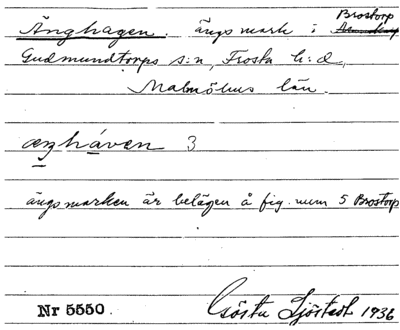 Änghagen. ängsmark i Brostorp
Gudmundtorps s:n, Frosta h:d,
Malmöhus län.
æŋháven 3
ängsmarken är belägen å fig. num 5 Brostorp
Nr 5550. Gösta Sjöstedt 1936